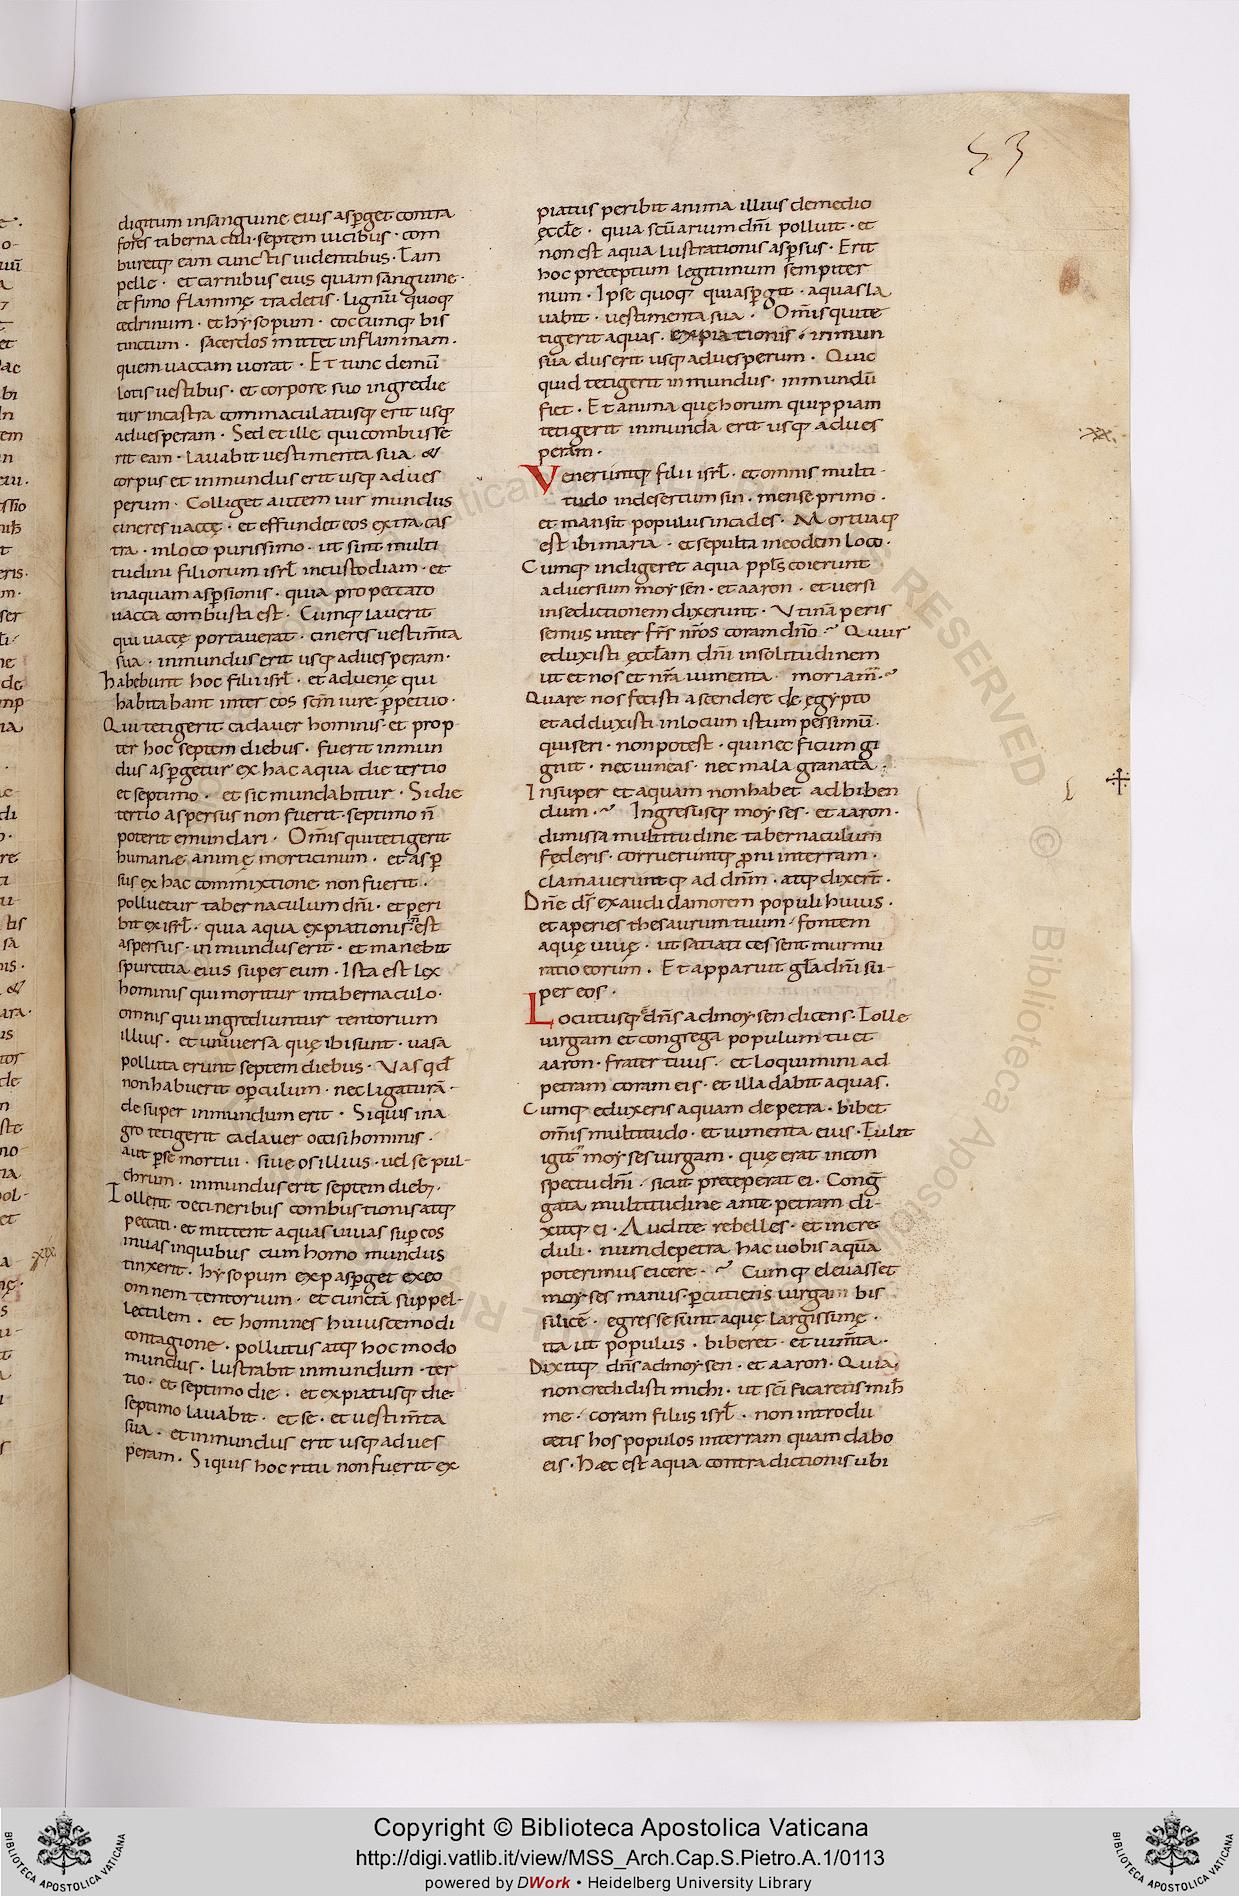 53
digitum insanguine eius asp̱get contra
fores taberna culi · septem uicibus · com
buretq; eam cunctis uidentibus · Tam
pelle · et carnibus eius quam sanguine ·
et fimo flammę tradetis · lignū quoq;
cedrinum · et hysopum · coccumq; bis
tinctum · sacerdos mittet inflammam ·
quem uaccam uorat · Et tunc demū
lotis uestibus · et corpore suo ingredie
tur incastra commaculatusq; erit usq;
aduesperam · Sed et ille qui combusse
rit eam · lauabit uestimenta sua &
corpus et inmundus erit usq; adues
perum · Colliget autem uir mundus
cineres uaccę · et effundet eos extra cas
tra · inloco purissimo · ut sint multi
tudini filiorum isrł incustodiam · et
inaquam asp̱sionis · quia propeccato
uacca combusta est · Cumq; lauerit
qui uaccę portauerat · cineres uestim̄ta
sua · inmundus erit usq; aduesperam ·
habebunt hoc filii isrł · et aduenę qui
habitabant inter eos sc̄m iure p̱petuo ·
Qui tetigerit cadauer hominis · et prop
ter hoc septem diebus · fuerit inmun
dus asp̱getur ex hac aqua die tertio
et septimo · et sic mundabitur · Si die
tertio aspersus non fuerit · septimo n̄
poterit emundari · Om̄is qui tetigerit
humanae animę morticinum · et asp̱
sus ex hac commixtione non fuerit ·
polluetur tabernaculum dn̄i · et peri
bit ex isrł · quia aqua expiationis n̄ est
aspersus · inmundus erit · et manebit
spurcitia eius super eum · Ista est lex
hominis qui moritur intabernaculo ·
omnis qui ingrediuntur tentorium
illius · et uniuersa quę ibi sunt · uasa
polluta erunt septem diebus · Vas qd̄
non habuerit op̱culum · nec ligaturā ·
de super inmundum erit · Siquis ina
gro tetigerit cadauer occisi hominis ·
aut p̱se mortui · siue os illius · uel sepul-
chrum · inmundus erit septem dieb;
Tollent de cineribus combustionis atq;
peccati · et mittent aquas uiuas sup̱ eos
inuas inquibus cum homo mundus
tinxerit · hysopum exp asp̱get exeo
omnem tentorium · et cunctā suppel-
lectilem · et homines huiuscemodi
contagione · pollutus atq; hoc modo
mundus · lustrabit inmundum · ter
tio · et septimo die · et expiatusq; die
septimo lauabit · et se · et uestim̄ta
sua · et inmundus erit usq; adues
peram · Siquis hoc ritu non fuerit ex
piatus peribit anima illius demedio
ęccłe · quia sc̄uarium dn̄i polluit · et
non est aqua lustrationis asp̱sus · Erit
hoc preceptum legitimum sempiter
num · Ipse quoq; qui asp̱git · aquas la
uabit · uestimenta sua · Om̄is qui te
tigerit aquas · expiationis · inmun
sua dus erit usq; aduesperum · Quic
quid tetigerit inmundus · inmundū
fiet · Et anima quę horum quippiam
tetigerit inmunda erit usq; adues
peram ·
xx.
Veneruntq; filii isrł · et omnis multi ·
tudo indesertum sin · mense primo ·
et mansit populus in cades · Mortuaq;
est ibi maria · et sepulta ineodem loco ·
Cumq; indigeret aqua ppl̄s coierunt
aduersum moysen · et aaron · et uersi
insedictionem dixerunt · Vtinā peris
semus inter fr̄s nr̄os coram dn̄o · Quur
eduxisti ęccłam dn̄i insolitudinem
ut et nos et nr̄a iumenta · moriam̄ ·
Quare nos fecisti ascendere de ęgypto
et adduxisti inlocum istum pessimū ·
qui seri · non potest · qui nec ficum gi
gnit · nec uineas · nec mala granata ·
Insuper et aquam non habet ad biben
dum · Ingresusq; moyses · et aaron ·
dimissa multitudine tabernaculum
fęderis · corrueruntq; p̱ni interram ·
clamaueruntq; ad dn̄m · atq; dixer̄t ·
Dn̄e ds̄ exaudi clamorem populi huius ·
et aperies thesaurum tuum · fontem
aquę uiuę · ut satiati cessent murmu
ratio eorum · Et apparuit gła dn̄i su-
per eos ·
Locutusq; dn̄s ad moysen dicens · Tolle
uirgam et congrega populum tu et
aaron · frater tuus · et loquimini ad
petram coram eis · et illa dabit aquas ·
Cumq; eduxeris aquam de petra · bibet
om̄is multitudo · et iumenta eius · Tulit
igit̄ moyses uirgam · quę erat incon
spectu dn̄i · sicut preceperat ei · Conḡ
gata multitudine ante petram di-
xitq; ei · Audite rebelles · et incre
duli · num depetra hac uobis aquā
poterimus eicere · Cumq; eleuasset
moyses manus · p̱cutiens uirgam bis
silicē · egresse sunt aquę largissimę ·
ita ut populus · biberet · et ium̄ta ·
Dixitq; dn̄s ad moysen · et aaron · Quia
non credidisti michi · ut sc̄ificaretis mih̄
me · coram filiis isrł · non introdu
cetis hos populos interram quam dabo
eis · Haec est aqua contradictionis ubi
Copyright © Biblioteca Apostolica Vaticana
http://digi.vatlib.it/view/MSS_Arch.Cap.S.Pietro.A.1/0113
powered by DWork • Heidelberg University Library
BIBLIOTECA APOSTOLICA VATICANA
BIBLIOTECA APOSTOLICA VATICANA